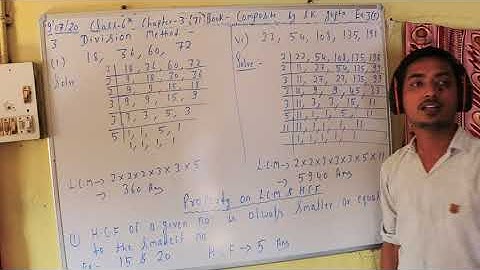 09/07/20 Class-6th Chapter-3 (7) Book- Composite by S.K Gupta Ex-3(c)
3 Division Method -
(i) 18, 36, 60, 72
Solve -
2 | 18, 36, 60, 72
2 | 9, 18, 30, 36
2 | 9, 9, 15, 18
3 | 9, 9, 15, 9
3 | 3, 3, 5, 3
5 | 1, 1, 5, 1
1, 1, 1, 1
LCM→ 2×2×2×3×3×5
→ 360 Ans
vi) 22, 54, 108, 135, 198
Solve -
2 | 22, 54, 108, 135, 198
2 | 11, 27, 54, 135, 99
3 | 11, 27, 27, 135, 99
11, 1, 1, 5, 11
LCM→ 2×2×3×3×3×5×11
→ 5940 Ans
Property on LCM & HCF
(i) H.C.F of a given no. is always smaller or equal
to the smallest no.
Ex- 15 & 20 H.C.F → 5 Ans